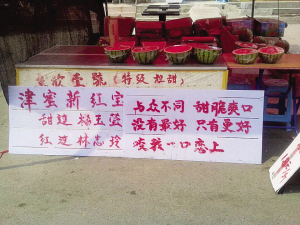 (特级 超甜)
津蜜新红宝 与众不同 甜脆爽口
甜过 杨玉莹 没有最好 只有更好
红过 林志玲 咬我一口恋上